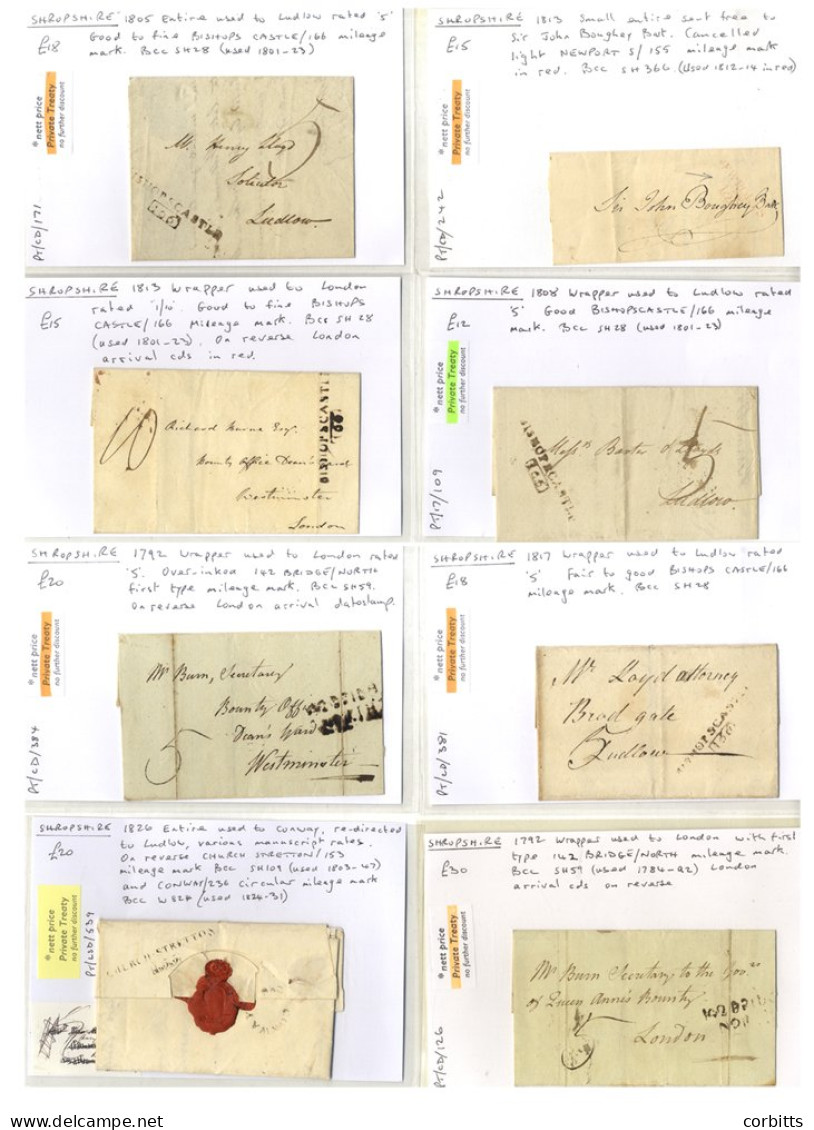 SHROPSHIRE 1805 Entire used to Ludlow rated '5'
£18 Good to fine BISHOPS CASTLE/166 mileage
mark. BCC SH28 (used 1801-23)
* nett price
Private Treaty
no further discount
PT/CD/171
Mr. Henry Lloyd
Solicitor
Ludlow.
BISHOPSCASTLE
166
SHROPSHIRE 1813 Small entire sent free to
£15 Sir John Boughey Bart. Cancelled
light NEWPORT S/155 mileage mark
in red. BCC SH366. (Used 1812-14 in red)
* nett price
Private Treaty
no further discount
PT/CD/242
Sir John Boughey Bart
SHROPSHIRE 1813 Wrapper used to London
rated '1/10'. Good to fine BISHOPS
£15 CASTLE/166 mileage mark. BCC SH28
(used 1801-23). On reverse London
arrival cds in red.
* nett price
Private Treaty
no further discount
Richard Esqr.
Bounty Office Dean's Yard
Westminster
London
BISHOPSCASTLE
166
SHROPSHIRE 1808 Wrapper used to Ludlow rated
£12 '5' Good BISHOPSCASTLE/166 mileage
mark. BCC SH28 (used 1801-23)
* nett price
Private Treaty
no further discount
PT/17/109
Messrs
Ludlow.
BISHOPSCASTLE
166
5
SHROPSHIRE 1792 Wrapper used to London rated
£20 '5'. Over-inked 142 BRIDGE/NORTH
first type mileage mark. BCC SH59.
On reverse London arrival datestamp.
* nett price
Private Treaty
no further discount
PT/CD/384
Mr Burn, Secretary
Bounty Office
Dean's Yard
5 Westminster
SHROPSHIRE 1817 Wrapper used to Ludlow rated
£18 '5' Fair to good BISHOPS CASTLE/166
mileage mark. BCC SH28
* nett price
Private Treaty
no further discount
PT/CD/381
Mr Loyd attorney
Brod gate
5 Ludlow
BISHOPSCASTLE
166
SHROPSHIRE 1826 Entire used to Conway, re-directed
£20 to Ludlow, various manuscript rates.
On reverse CHURCH STRETTON/153
mileage mark BCC SH109 (used 1803-47)
and CONWAY/236 circular mileage mark
BCC W824 (used 1824-31)
* nett price
Private Treaty
no further discount
PT/LSD/539
CHURCH STRETTON
SHROPSHIRE 1792 Wrapper used to London with first
£30 type 142 BRIDGE/NORTH mileage mark.
BCC SH59 (used 1784-92) London
arrival cds on reverse
* nett price
Private Treaty
no further discount
PT/CD/126
Mr Burn Secretary to the Govrs
of Queen Anne's Bounty
London
corbitts